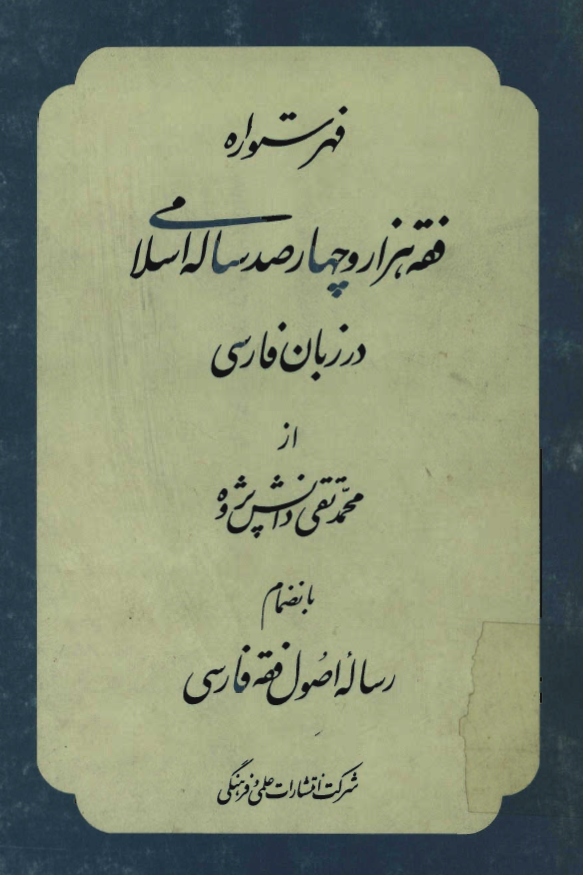 فهرستواره
فقه هزار و چهار صد ساله اسلامی
در زبان فارسی
از
محمّد تقی دانش پژوه
بانضمام
رسالهٔ اصُول فقه فارسی
شرکت انتشارات علمی و فرهنگی